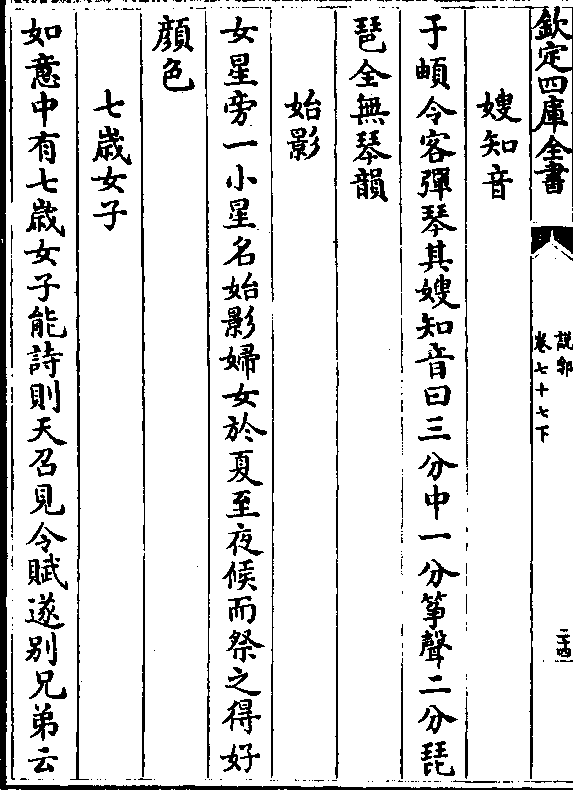 欽定四庫全書
說郛
卷七十七下
二十四
嫂知音
于頔令客彈琴其嫂知音曰三分中一分箏聲二分琵
琶全無琴韻
始影
女星旁一小星名始影婦女於夏至夜候而祭之得好
顏色
七歲女子
如意中有七歲女子能詩則天召見令賦送別兄弟云